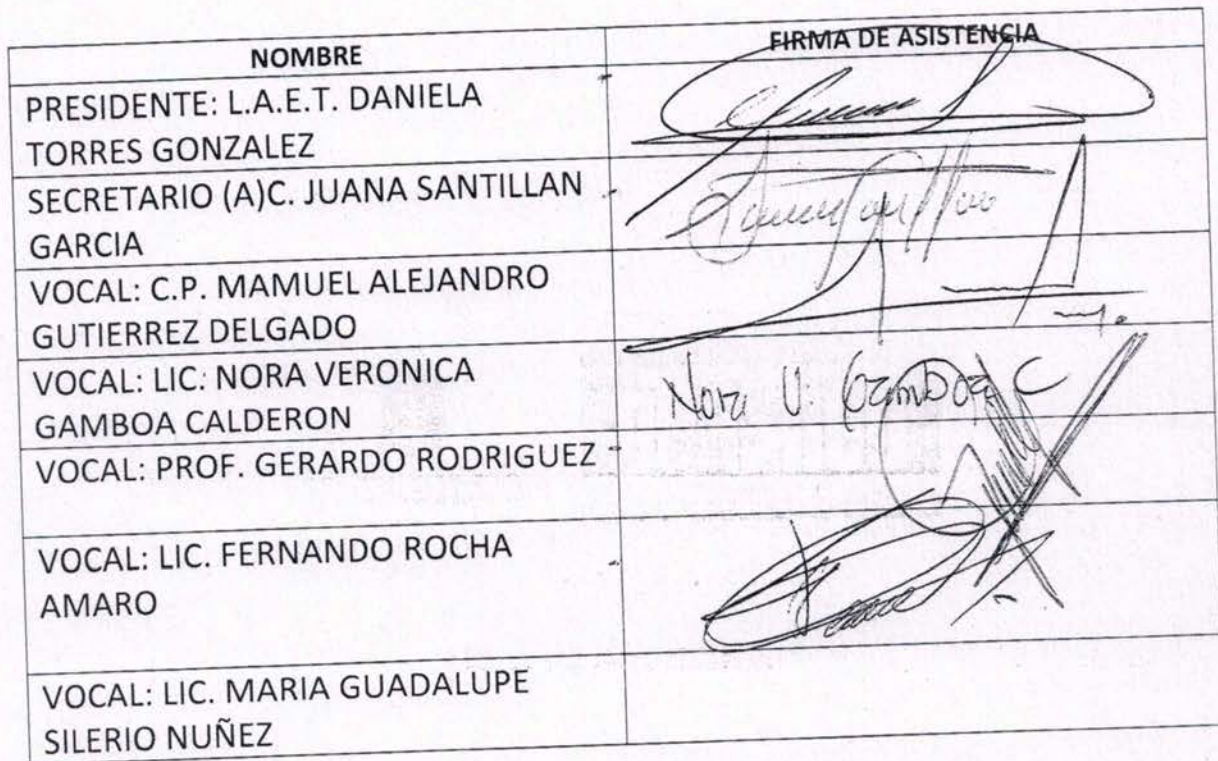 NOMBRE
FIRMA DE ASISTENCIA
PRESIDENTE: L.A.E.T. DANIELA
TORRES GONZALEZ
SECRETARIO (A)C. JUANA SANTILLAN
GARCIA
VOCAL: C.P. MAMUEL ALEJANDRO
GUTIERREZ DELGADO
VOCAL: LIC. NORA VERONICA
GAMBOA CALDERON
Nora V. Gamboa C
VOCAL: PROF. GERARDO RODRIGUEZ
VOCAL: LIC. FERNANDO ROCHA
AMARO
VOCAL: LIC. MARIA GUADALUPE
SILERIO NUÑEZ